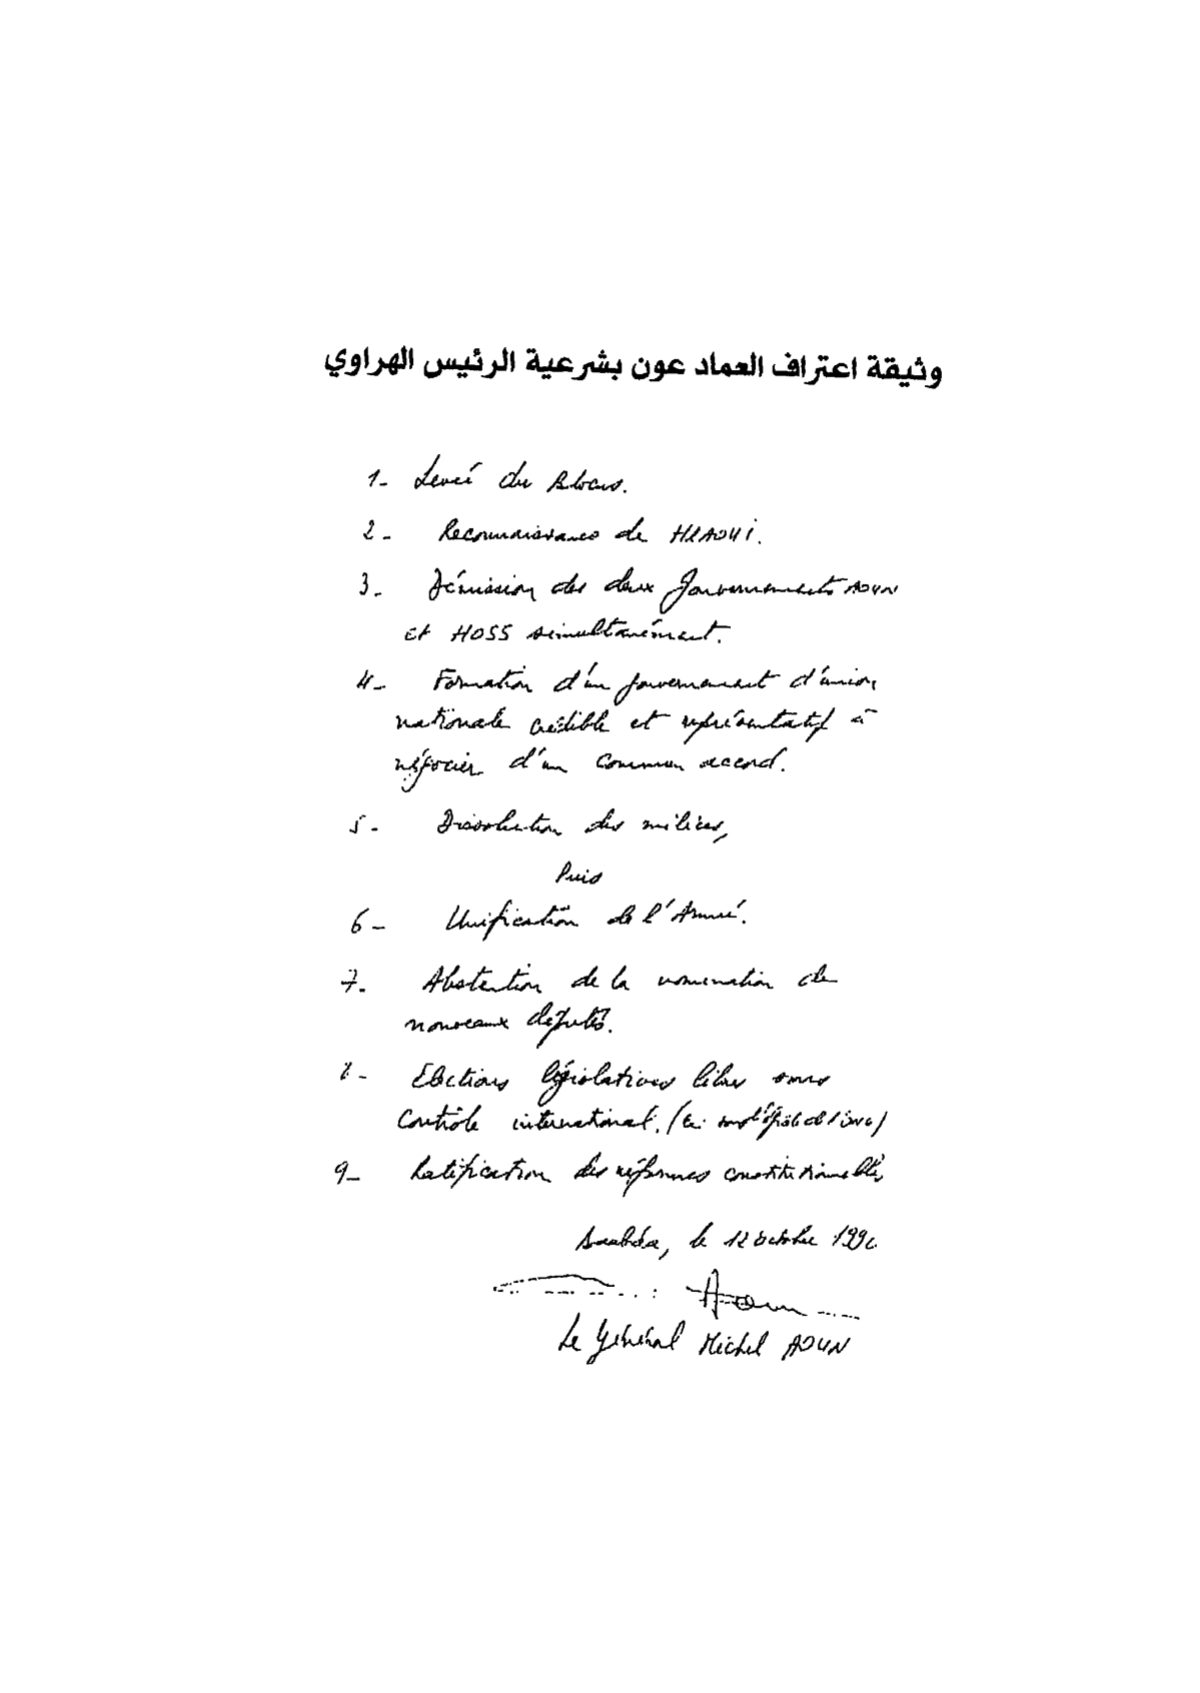 وثيقة اعتراف العماد عون بشرعية الرئيس الهراوي
1- Levée du Blocus.
2- Reconnaissance de HRAOUI.
3- Démission des deux gouvernements AOUN
et HOSS simultanément.
4- Formation d'un gouvernement d'union
nationale crédible et représentatif à
négocier d'un commun accord.
5- Dissolution des milices,
Puis
6- Unification de l'Armée.
7. Abstention de la nomination de
nouveaux députés.
8- Elections législatives libres sous
Contrôle international.
9- Ratification des réformes constitutionnelles
Baabda, le 12 octobre 1990
Aoun
Le Général Michel AOUN